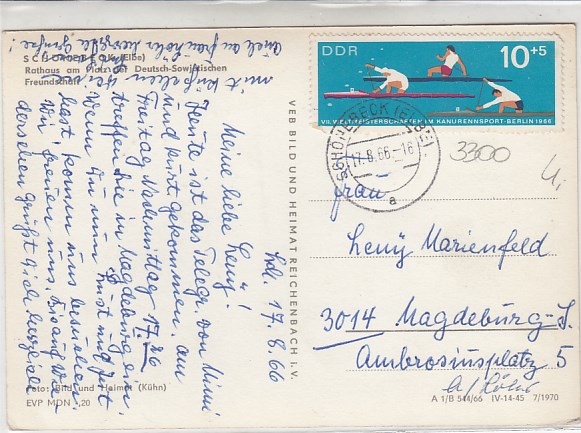 SCHÖNEBECK (Elbe)
Rathaus am Platz der Deutsch-Sowjetischen
Freundschaft
DDR
10+5
VII. WELTMEISTERSCHAFTEN IM KANURENNSPORT · BERLIN 1966
SCHÖNEBECK (ELBE)
17.8.66-16
a
3300
VEB BILD UND HEIMAT REICHENBACH i. V.
17. 8. 66
Meine liebe Leny!
Heute ist das Telegr. von Mimi
und Kurt gekommen. am
Freitag Nachmittag 17.26
treffen Sie in Magdeburg ein.
Wenn Du nun Lust und Zeit
hast, komm uns besuchen.
Wir freuen uns.
derselben grüßt Dich herzlich
Frau
Leny Marienfeld
3014 Magdeburg-S.
Ambrosiusplatz 5
Foto: Bild und Heimat (Kühn)
EVP MDN ,20
A 1/B 544/66 IV-14-45 7/1970